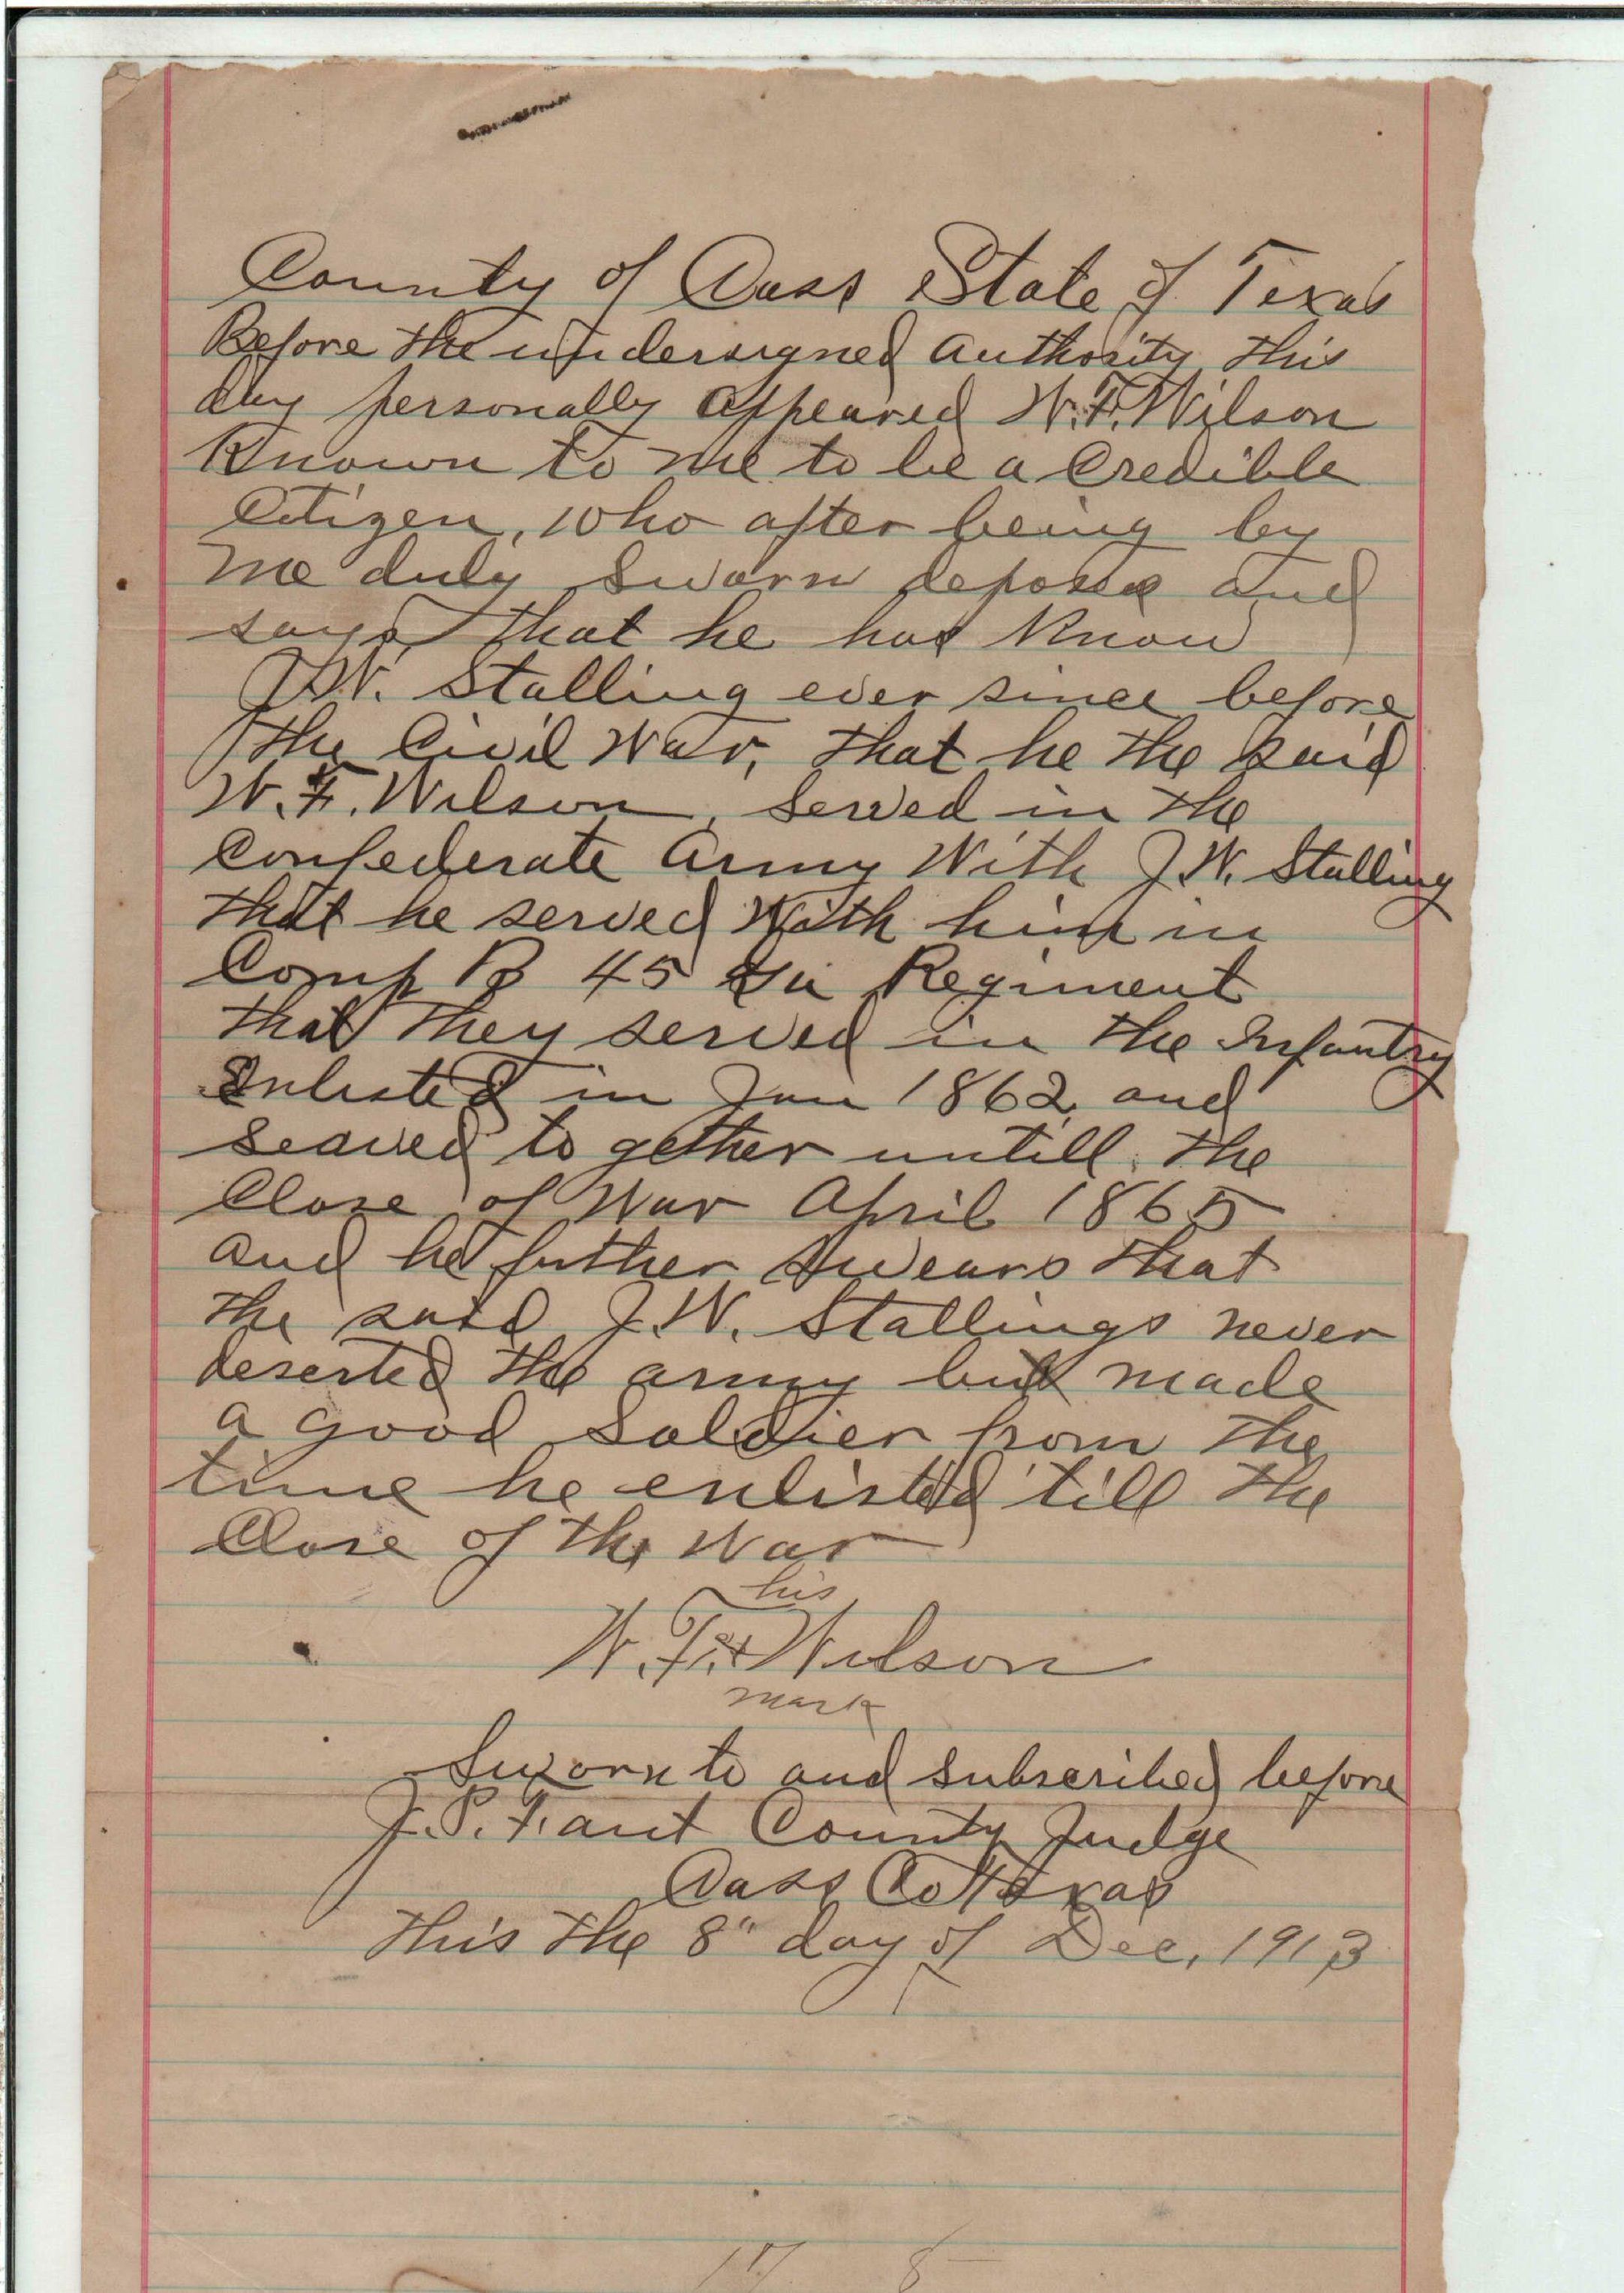 County of Cass State of Texas
Before the undersigned authority this
day personally appeared W.F. Wilson
Known to me to be a Credible
Citizen, who after being by
me duly sworn deposes and
says that he has Know
J.W. Stalling ever since before
the Civil War, that he the said
W.F. Wilson, served in the
Confederate Army With J.W. Stalling
that he served With him in
Comp B 45 Regiment
that they served in the Infantry
Enlisted in Jan 1862 and
searved to gether untill the
Close of War April 1865
and he further swears that
the said J.W. Stallings never
deserted the army but made
a good Soldier from the
time he enlisted till the
Close of the War
his
W.F. x Wilson
mark
Sworn to and subscribed before
J.P. Fant County Judge
Cass Co Texas
this the 8" day of Dec, 1913